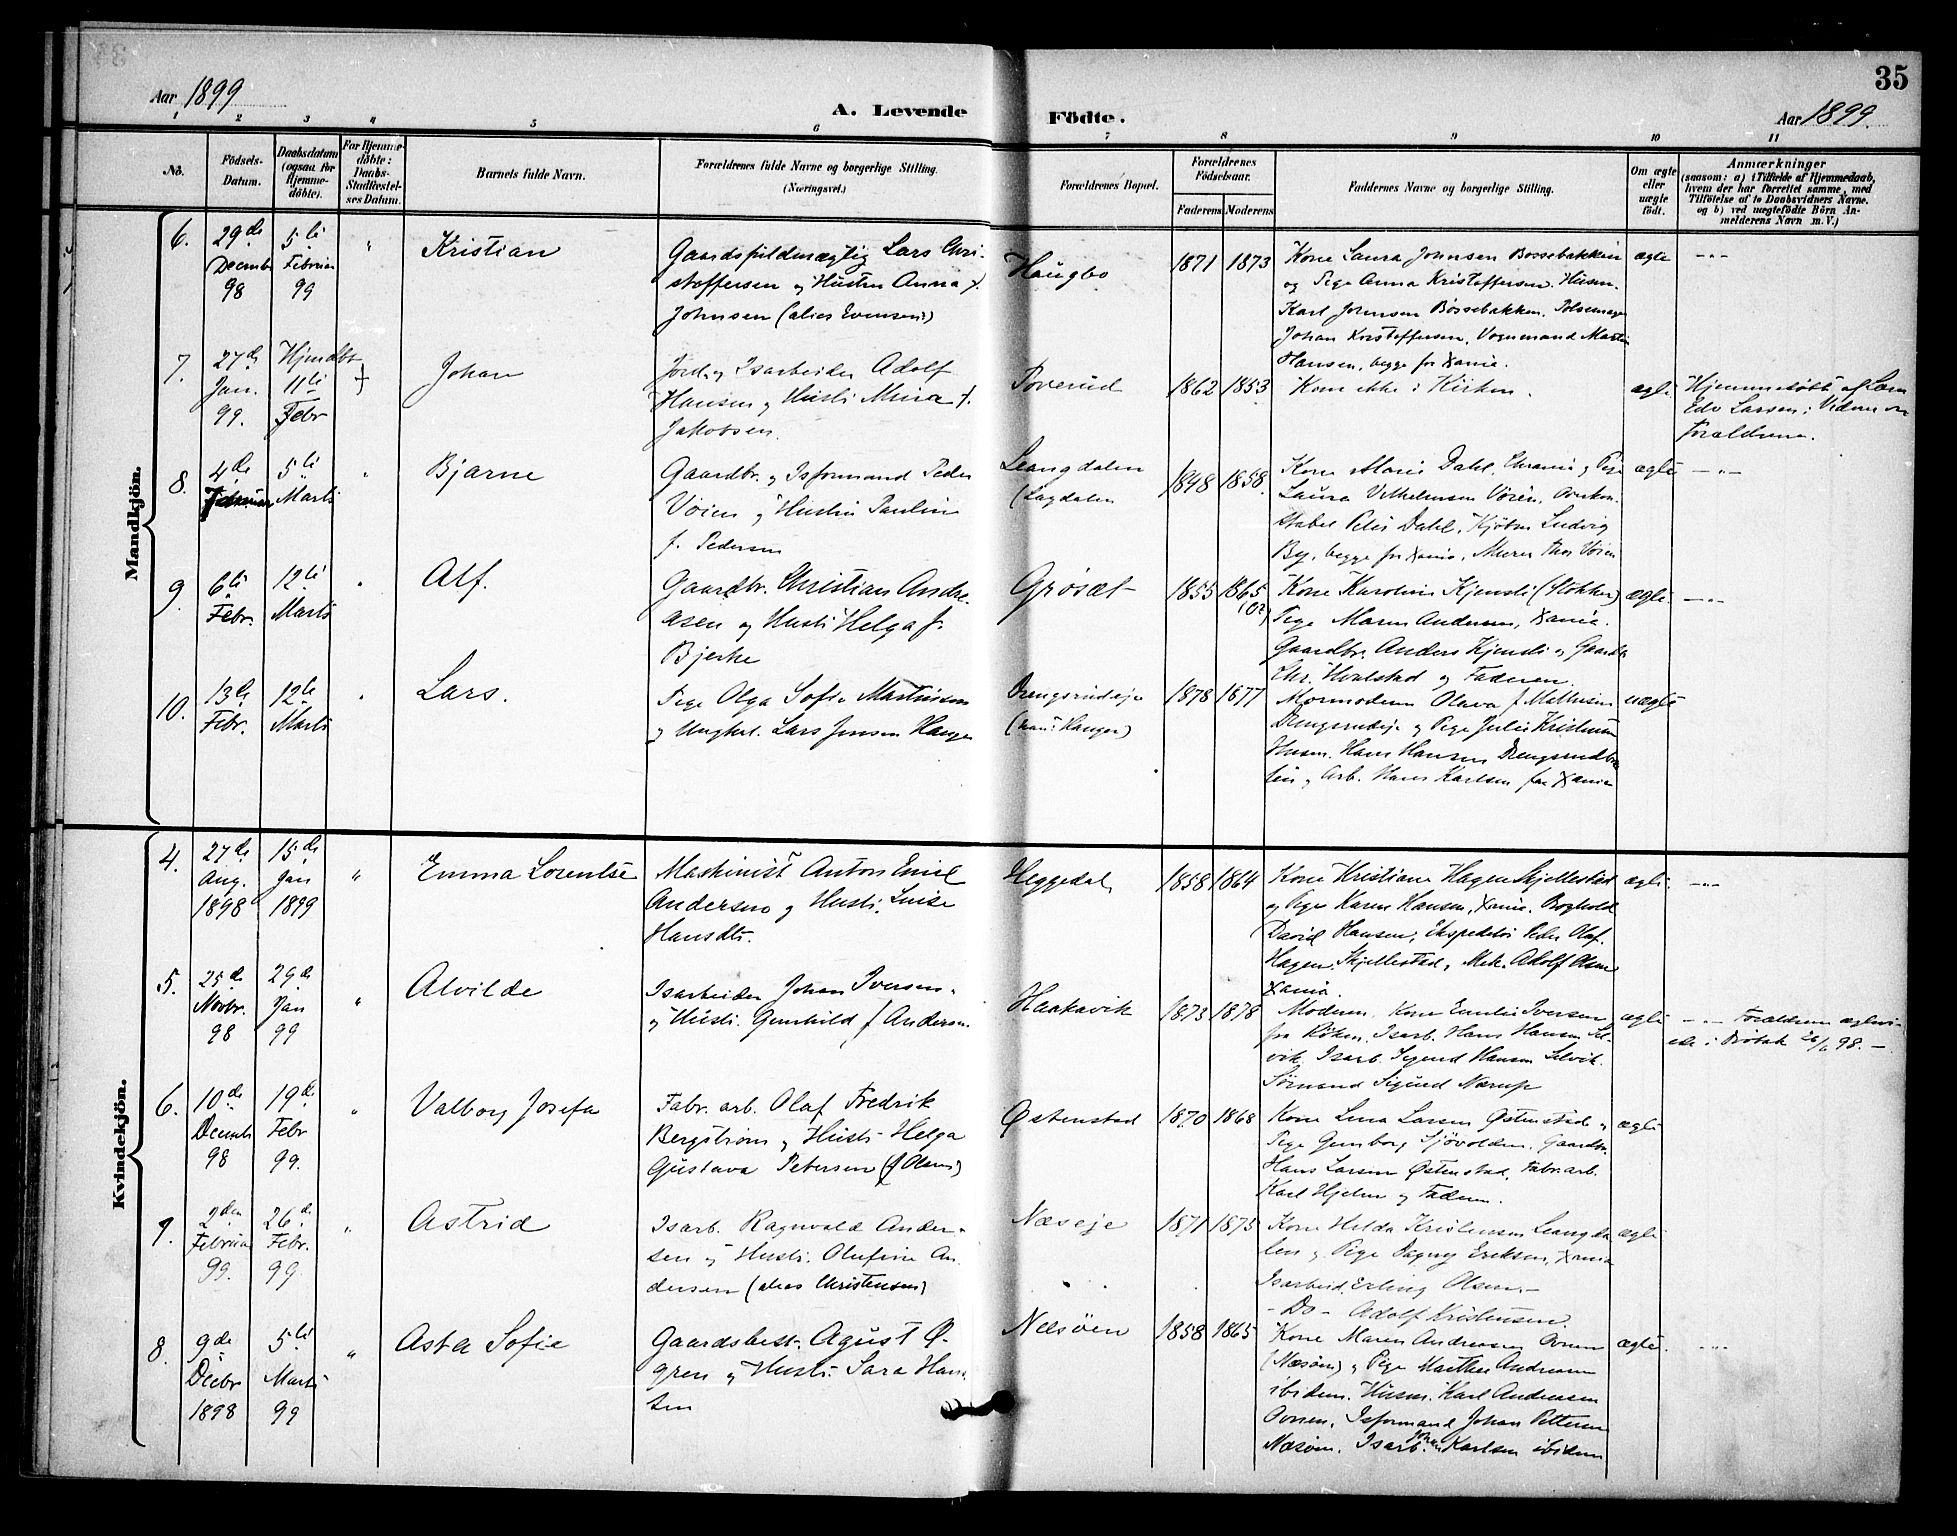 35
Aar 1899
A. Levende Födte.
Aar 1899.
1 2 3 4 5 6 7 8 9 10 11
No.
Födsels-Datum.
Daabsdatum (ogsaa for Hjemme-döbte).
For Hjemme-döbte: Daabs-Stadfæstel-ses Datum.
Barnets fulde Navn.
Forældrenes fulde Navne og borgerlige Stilling.
(Næringsvei.)
Forældrenes Bopæl.
Forældrenes Födselsaar.
Faderens Moderens
Faddernes Navne og borgerlige Stilling.
Om ægte eller uægte födt.
Anmærkninger
(saasom: a) i Tilfælde af Hjemmedaab, hvem der har forrettet samme, med Tilföielse af to Daabsvidners Navne. og b) ved uægtefödte Börn An-melderens Navn m. V.)
Mandkjön.
6. 29de Decemb 98
5te Februar 99
"
Kristian
Lars Chri-
stoffersen og Hustru Anna f.
Johnsen (alias Evensen)
Haugbo
1871 1873
Kone Laura Johnsen Bossebakken
og Pige Anna Kristoffersen. Husm.
Karl Johnsen Bössebakken.
Johan Kristoffersen, Vognmand Martin
Hansen, begge fr Xania.
ægte
— " —
7. 27de Jan. 99.
Hjmdbt 11te Febr
Johan
Jord og Isarbeider Adolf
Hansen og Hustr. f.
Jakobsen.
Poverud
1862 1853
Kom ikke i Kirken.
ægte
Hjemmedöbt af
Edv Larsen;
Forældrene.
8. 4de Februar
5te Marts
"
Bjarne
Gaardbr. og Isformand Peder
Voien og Hustru Paulin
f. Pedersen
Leangdalen
1848 1858.
Kone Marie Dahl, og Pige
Laura Vilhelmsen
Dahl, Ludvig
By, begge fr Xania, Murer Thor Voien
ægte
— " —
9. 6te Febr.
12te Marts
"
Alf.
Gaardbr. Christian Andre-
asen og Hustr Helga f.
Bjerke
Grösæt
1855 1865
Kone Karoline Kjensli (Stokker)
Pige Maren Andersen, Xania.
Gaardbr. Anders Kjensli og Gaardb
Chr. Hvalstad og Faderen.
ægte.
— " —
10. 13de Febr.
12te Marts
"
Lars.
Pige Olga Sofie Martinsen
og Ungkarl. Lars Jensen Haugen
Drengsrudeje
(Haugen)
1878 1877
Mormoderen Olava f Mathisen
Drengsrudeje og Pige Julie Kristiansen
Husm. Hans Hansen
og Arb. Hans Karlsen fra Xania
uægte
Kvindekjön.
4. 27de Aug. 1898
15de Jan 1899
"
Emma Lorentse
Maskinist Anton Emil
Andersen og Hustr. Luise
Hansdtr.
Heggedal
1858 1864
Kone Kristiane Hagen Skjellestad
og Pige Karen Hansen, Xania. Boghold
David Hansen, Ekspeditör Peder Olaf.
Hagen Skjellestad, Mek. Adolf Olsen
Xania.
ægte
— " —
5. 25de Novbr. 98
29de Jan 99
"
Alvilde
Isarbeider Johan Iversen
og Hustr. Gunhild f Andersn.
Haakavik
1873 1878
Moderen, Kone Emilie Iversen
fra Röken, Isarb. Hans Hansen Sel-
vik, Isarb. Hansen Selvik.
Sömand Sigurd Nærup
ægte
— " — Forældrene ægtevi-
ede i Dröbak 26/6 98. —
6. 10de Decemb 98
19de Febr 99.
"
Valborg Josefa
Fabr. arb. Olaf Fredrik
Bergström og Hustr. Helga
Gustava Petersen (f Olsen)
Østenstad
1870 1868
Kone Lina Larsen Østenstad og
Pige Gunborg Sjövolden. Gaardbr.
Hans Larsen Østenstad, Fabr. arb.
Karl Hjelm og Faderen.
ægte
7. 2den Februar 99.
26de Febr. 99
"
Astrid
Isarb. Ragnvald Ander-
sen og Hustr. Olufine An-
dersen (alias Christensen)
Næseje
1871 1875
Kone Hilda Kristensen Leangda
len og Pige Dagny Eriksen, Xania
Isarbeid. Erling Olsen.
— Do — Adolf Kristensen.
ægte
8. 9de Decbr 1898
5te Marts 99
"
Asta Sofie
Gaardsbest. Agust Ø-
gren og Hustr. Sara Han-
sen
Næsöen
1858 1865
Kone Maren Andreasen
(Næsöen) og Pige Marthe Andreasen
ibidem. Husm. Karl Andreasen
Isformand Johan Pettersen
Næsöen. Isarb. Johan Karlsen ibidem
ægte.
— " —